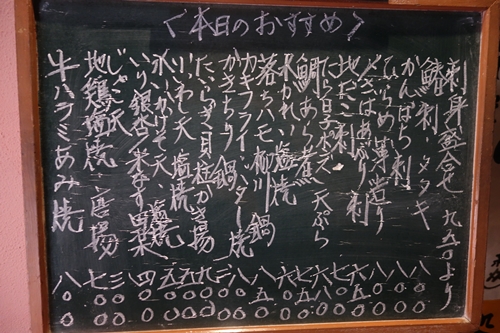 <本日のおすすめ>
刺身盛合せ 九五〇より
鰆 刺、タタキ 八〇〇
かんぱち 刺 八〇〇
ひらめ 薄造り 八〇〇
〆さばあぶり 刺 六〇〇
地だこ 刺 七〇〇
たら白子ポン酢 天ぷら 六八〇
鯛あら煮、塩焼 七五〇
水かれい 塩焼 六〇〇
落ちハモ 柳川鍋 八五〇
カキフライ、バター焼 八〇〇
かきちり鍋 〇〇
たいらぎ貝柱かき揚 九〇〇
いわし天、塩焼 五〇〇
水いかげそ天、塩焼 五〇〇
いり銀杏 四〇〇
じゃこ天 三〇〇
地鶏塩焼、唐揚 七〇〇
牛ハラミあみ焼 八〇〇